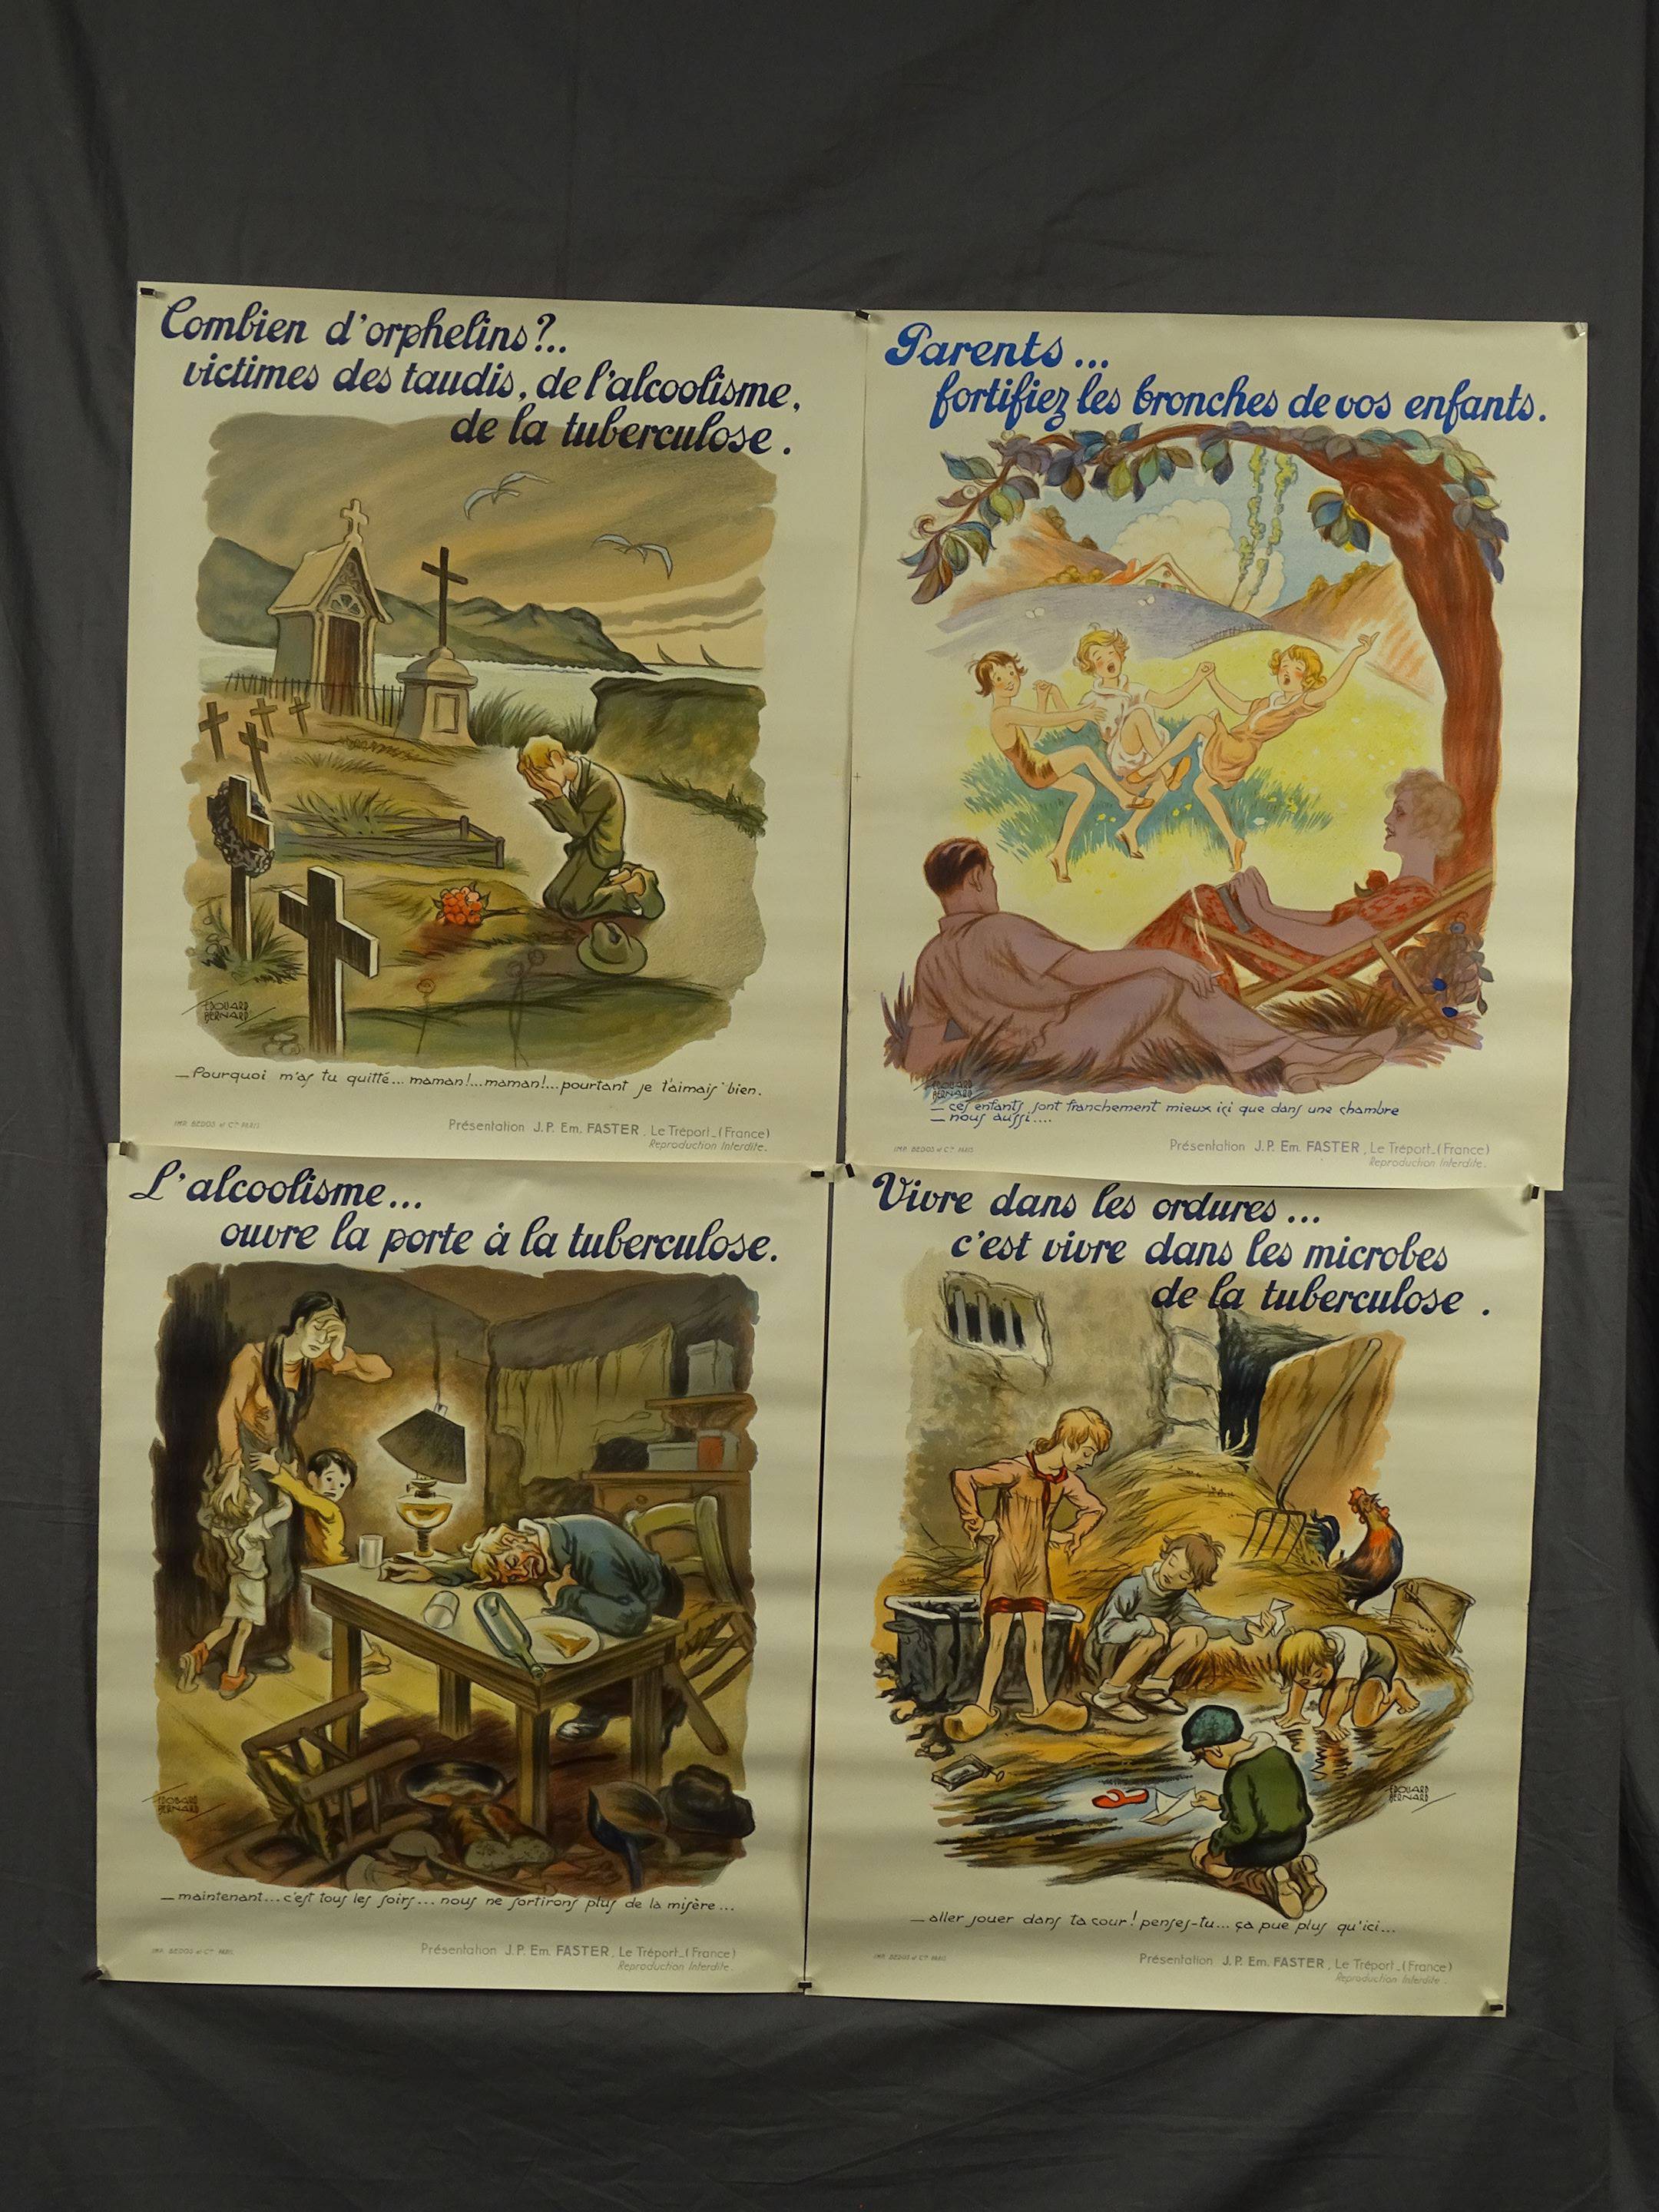 Combien d'orphelins?..
victimes des taudis, de l'alcoolisme,
de la tuberculose.
EDOUARD
BERNARD
_ Pourquoi m'as tu quitté... maman!... maman!... pourtant je t'aimais bien.
IMP. BEDOS et Cie PARIS
Présentation J.P. Em. FASTER, Le Tréport_(France)
Reproduction Interdite.
Parents...
fortifiez les bronches de vos enfants.
EDOUARD
BERNARD
_ ces enfants sont franchement mieux ici que dans une chambre
nous aussi....
IMP. BEDOS et Cie PARIS
Présentation J.P. Em. FASTER, Le Tréport_(France)
Reproduction Interdite.
L'alcoolisme...
ouvre la porte à la tuberculose.
EDOUARD
BERNARD
_ maintenant... c'est tous les soirs... nous ne sortirons plus de la misère...
IMP. BEDOS et Cie PARIS
Présentation J.P. Em. FASTER, Le Tréport_(France)
Reproduction Interdite.
Vivre dans les ordures...
c'est vivre dans les microbes
de la tuberculose.
EDOUARD
BERNARD
_ aller jouer dans ta cour! penses-tu... ça pue plus qu'ici...
IMP. BEDOS et Cie PARIS
Présentation J.P. Em. FASTER, Le Tréport_(France)
Reproduction Interdite.